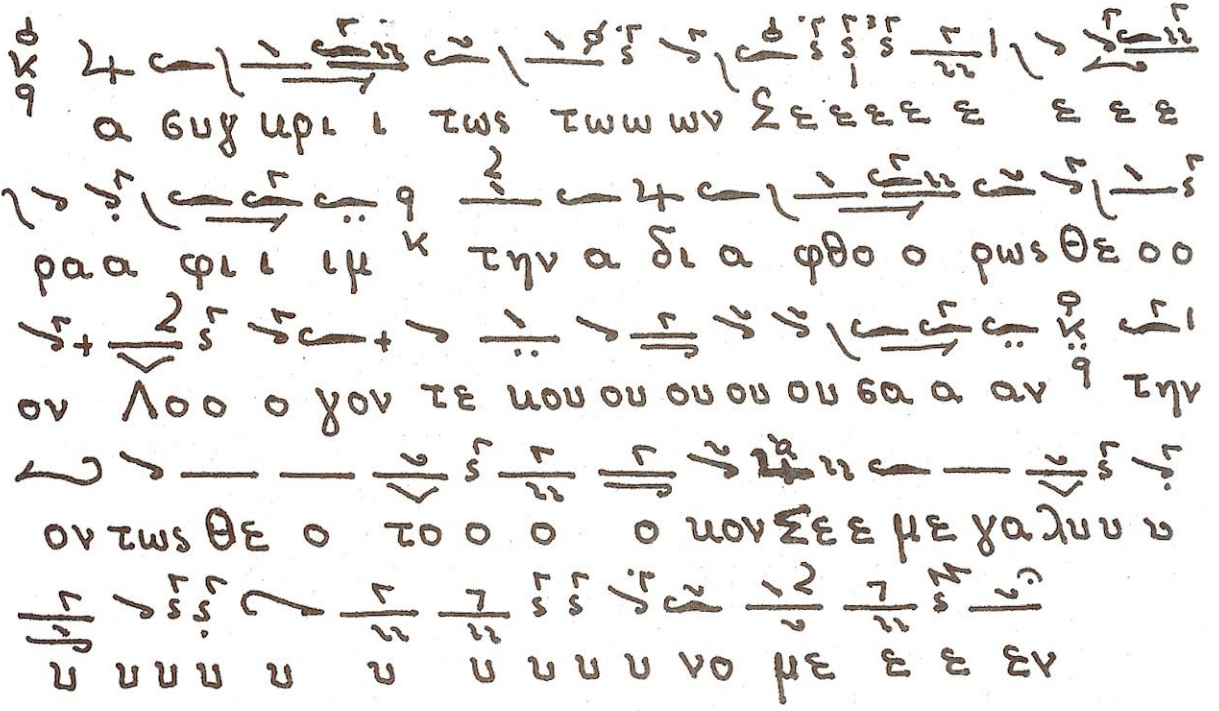 α συγ κρι ι τως τωω ων Σε ε ε ε ε ε ε ε ε
ρα α φι ι ιμ την α δι α φθο ο ρως Θε ο ο
ον Λο ο ο γον τε κου ου ου ου ου σα α αν την
ον τως Θε ο το ο ο ο κον Σε ε ε με γα λυ υ υ υ
υ υ υ υ υ υ υ υ υ υ νο με ε ε εν